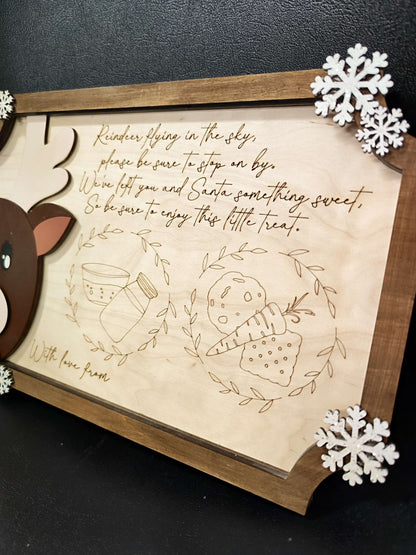 Reindeer flying in the sky,
please be sure to stop on by.
We've left you and Santa something sweet,
So be sure to enjoy this little treat.
With love from